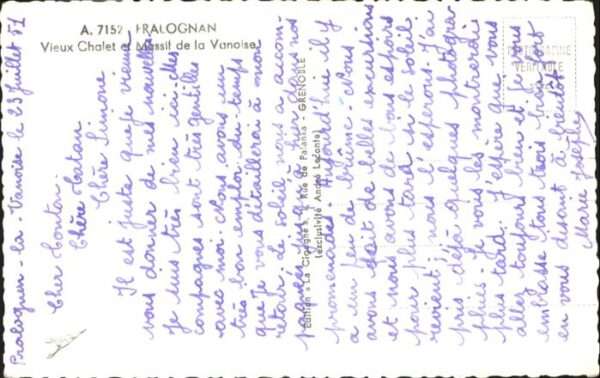 A. 7152. PRALOGNAN
Vieux Chalet et Massif de la Vanoise
PHOTOGRAPHIE
VERITABLE
Edition « La Cigogne », Rue de Palanka - GRENOBLE
(exclusivité André Leconte)
Pralognan-la-Vanoise le 23 juillet 51
Cher Tonton.
Chère Tatan
Chère Simone
Il est juste que je vienne
vous donner de mes nouvelles
Je suis très bien ici. des
compagnes sont très gentilles
avec moi. Nous avons un
très bon emploi du temps
que je vous détaillerai à mon
retour. Le soleil nous a accom-
pagnées jusqu'à hier dans nos
promenades. Aujourd'hui il y
a un peu de brume. Nous
avons fait de belles excursions
et nous avons de bons espoirs
pour plus tard si le soleil
revient; nous l'espérons. J'ai
pris déjà quelques photogra
phies. Je vous les montrerai
plus tard. J'espère que vous
allez toujours bien et je vous
embrasse tous trois bien fort
en vous disant à bientôt.
Marie Josèphe